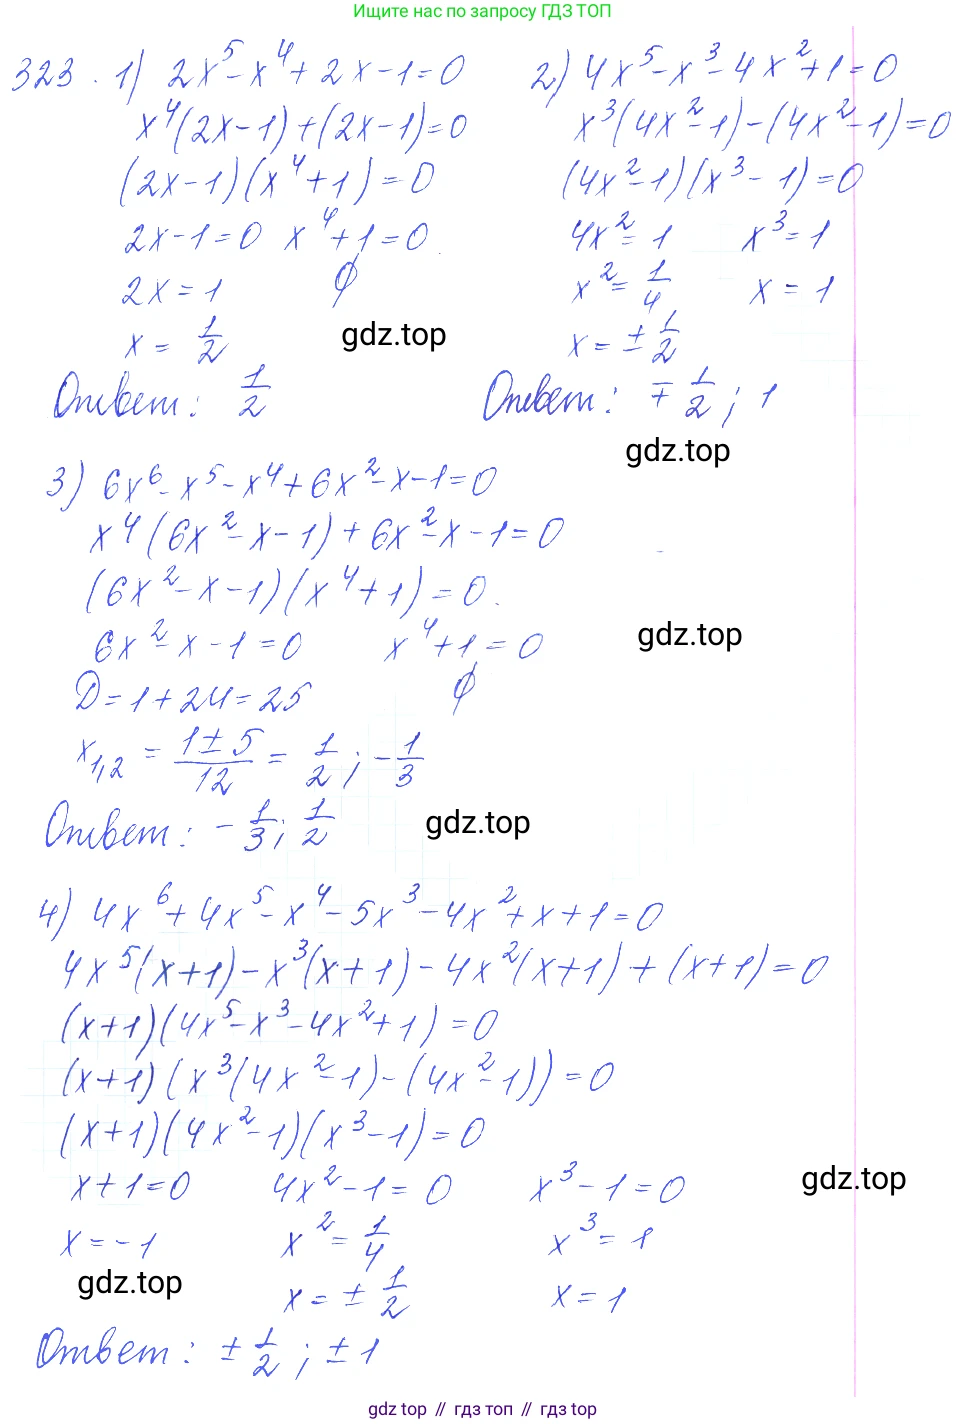 Ищите нас по запросу ГДЗ ТОП
323. 1) 2x⁵ - x⁴ + 2x - 1 = 0
x⁴(2x-1) + (2x-1) = 0
(2x-1)(x⁴+1) = 0
2x-1=0 x⁴+1=0
2x=1 ∅
x = 1/2
gdz.top
Ответ: 1/2
2) 4x⁵ - x³ - 4x² + 1 = 0
x³(4x²-1) - (4x²-1) = 0
(4x²-1)(x³-1) = 0
4x² = 1 x³ = 1
x² = 1/4 x = 1
x = ± 1/2
Ответ: ∓ 1/2; 1
gdz.top
3) 6x⁶ - x⁵ - x⁴ + 6x² - x - 1 = 0
x⁴(6x² - x - 1) + 6x² - x - 1 = 0
(6x² - x - 1)(x⁴+1) = 0.
6x² - x - 1 = 0 x⁴+1 = 0
gdz.top
D = 1 + 24 = 25 ∅
x₁,₂ = (1±5)/12 = 1/2; -1/3
Ответ: -1/3; 1/2
gdz.top
4) 4x⁶ + 4x⁵ - x⁴ - 5x³ - 4x² + x + 1 = 0
4x⁵(x+1) - x³(x+1) - 4x²(x+1) + (x+1) = 0
(x+1)(4x⁵ - x³ - 4x² + 1) = 0
(x+1)(x³(4x²-1) - (4x²-1)) = 0
(x+1)(4x²-1)(x³-1) = 0
x+1=0 4x²-1=0 x³-1=0
gdz.top
x = -1 x² = 1/4 x³ = 1
gdz.top
x = ± 1/2 x = 1
Ответ: ± 1/2; ± 1
gdz top // гдз топ // gdz top